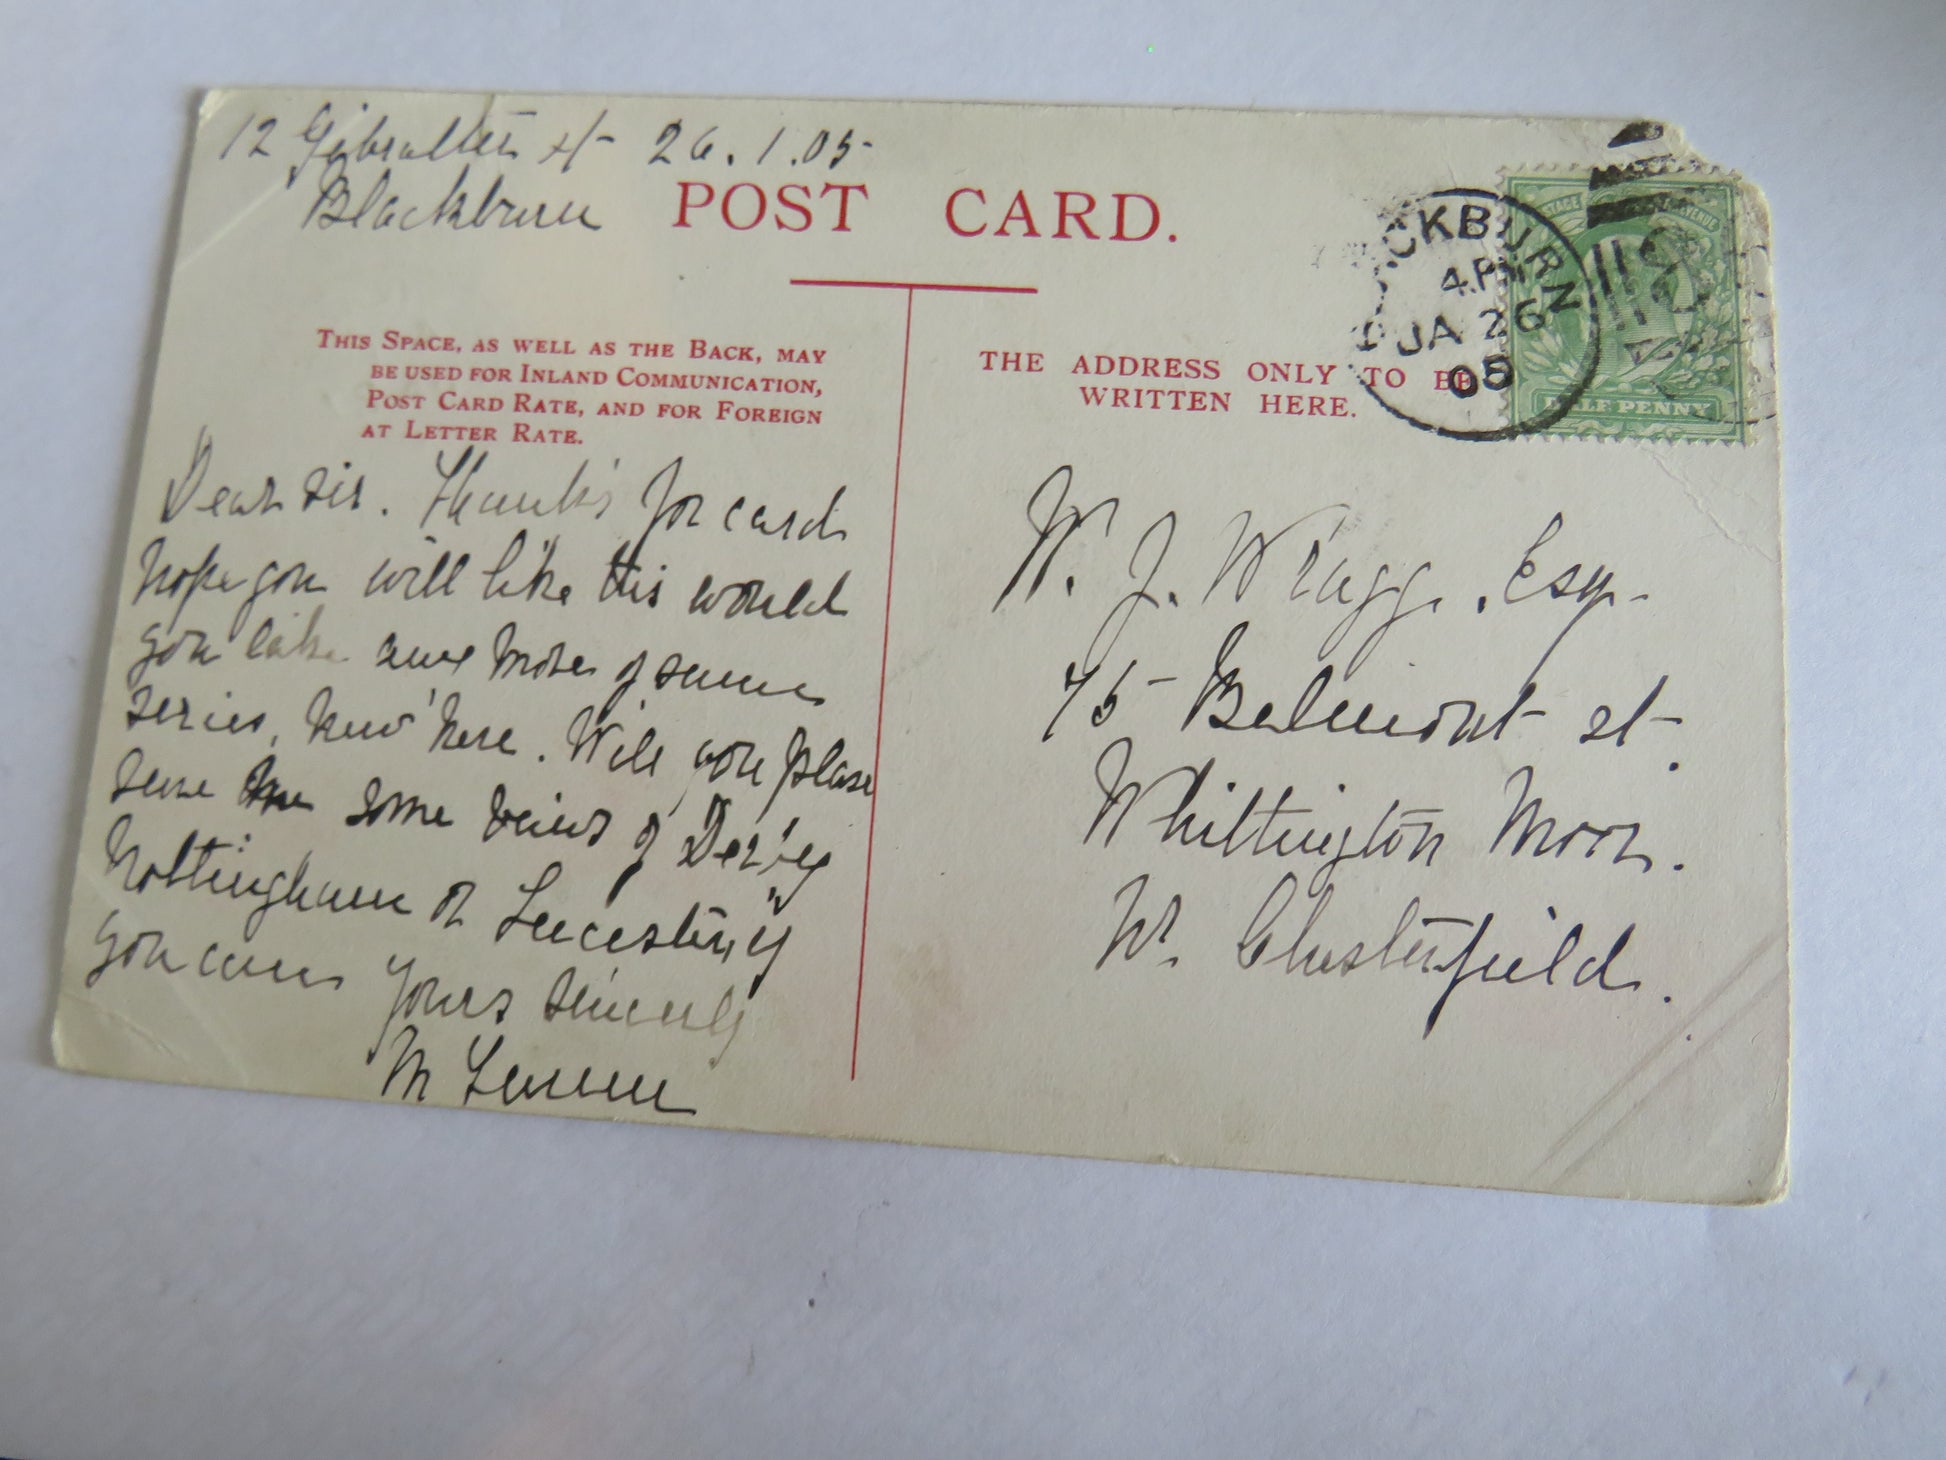 12 Gibralter st 26.1.05
Blackburn
POST CARD.
THIS SPACE, AS WELL AS THE BACK, MAY
BE USED FOR INLAND COMMUNICATION,
POST CARD RATE, AND FOR FOREIGN
AT LETTER RATE.
Dear sir. Thanks for card
hope you will like this would
you like some more of same
series, new here. Will you please
send me some views of Derby
Nottingham or Leicester, if
you can
Yours sincerely
M
THE ADDRESS ONLY TO BE
WRITTEN HERE.
BLACKBURN
4.PM
JA 26
05
POSTAGE REVENUE
HALF PENNY
W. J. Wragg. Esq.
75 Belmont st.
Whittington Moor.
Nr. Chesterfield.